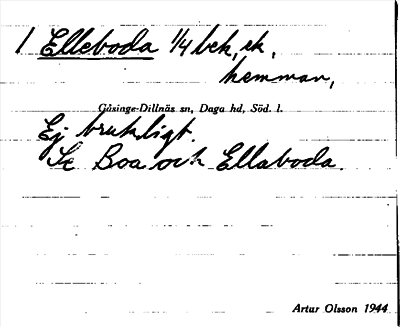 1 Elleboda 1/4 bek, sk,
hemman,
Gåsinge-Dillnäs sn, Daga hd, Söd. l.
Ej brukligt.
Se Boa och Ellaboda.
Artur Olsson 1944